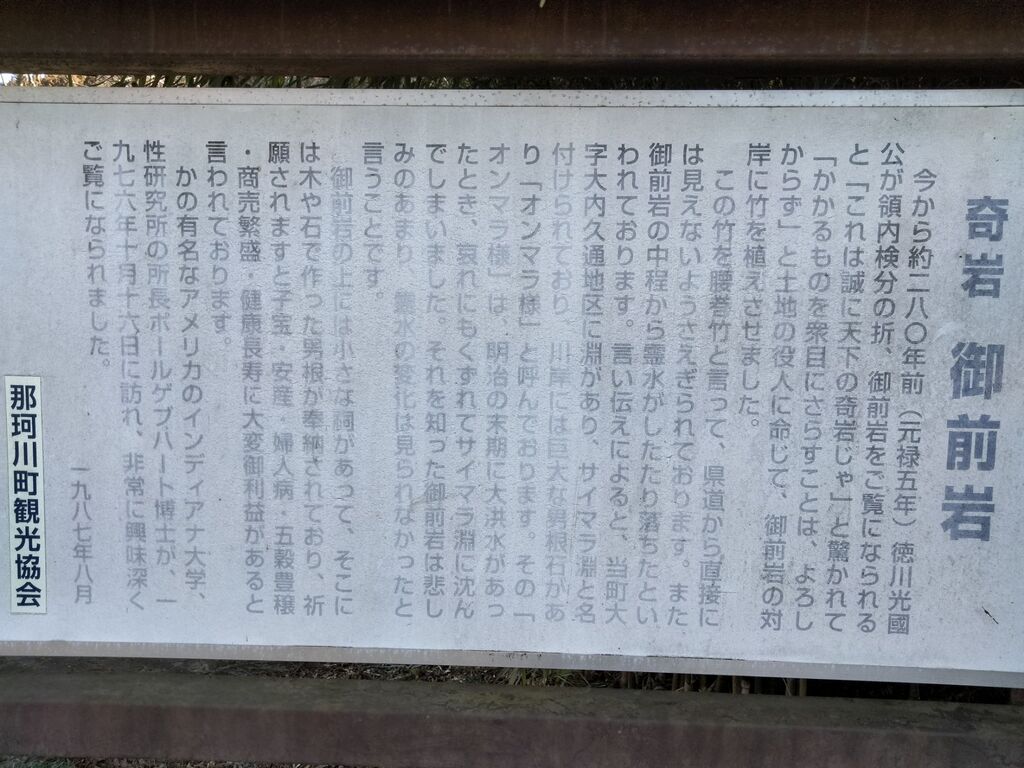 奇岩 御前岩
今から約二八〇年前（元禄五年）徳川光國
公が領内検分の折、御前岩をご覧になられる
と「これは誠に天下の奇岩じゃ」と驚かれて
「かかるものを衆目にさらすことは、よろし
からず」と土地の役人に命じて、御前岩の対
岸に竹を植えさせました。
この竹を腰巻竹と言って、県道から直接に
は見えないようさえぎられております。また
御前岩の中程から霊水がしたたり落ちたとい
われております。言い伝えによると、当町大
字大内久通地区に淵があり、サイマラ淵と名
付けられており、川岸には巨大な男根石があ
り「オンマラ様」と呼んでおります。その「
オンマラ様」は、明治の末期に大洪水があっ
たとき、哀れにもくずれてサイマラ淵に沈ん
でしまいました。それを知った御前岩は悲し
みのあまり、霊水の変化は見られなかったと
言うことです。
御前岩の上には小さな祠があって、そこに
は木や石で作った男根が奉納されており、祈
願されますと子宝・安産・婦人病 五穀豊穣
・商売繁盛・健康長寿に大変御利益があると
言われております。
かの有名なアメリカのインディアナ大学、
性研究所の所長ポールゲブハート博士が、一
九七六年十月十六日に訪れ、非常に興味深く
ご覧になられました。
一九八七年八月
那珂川町観光協会